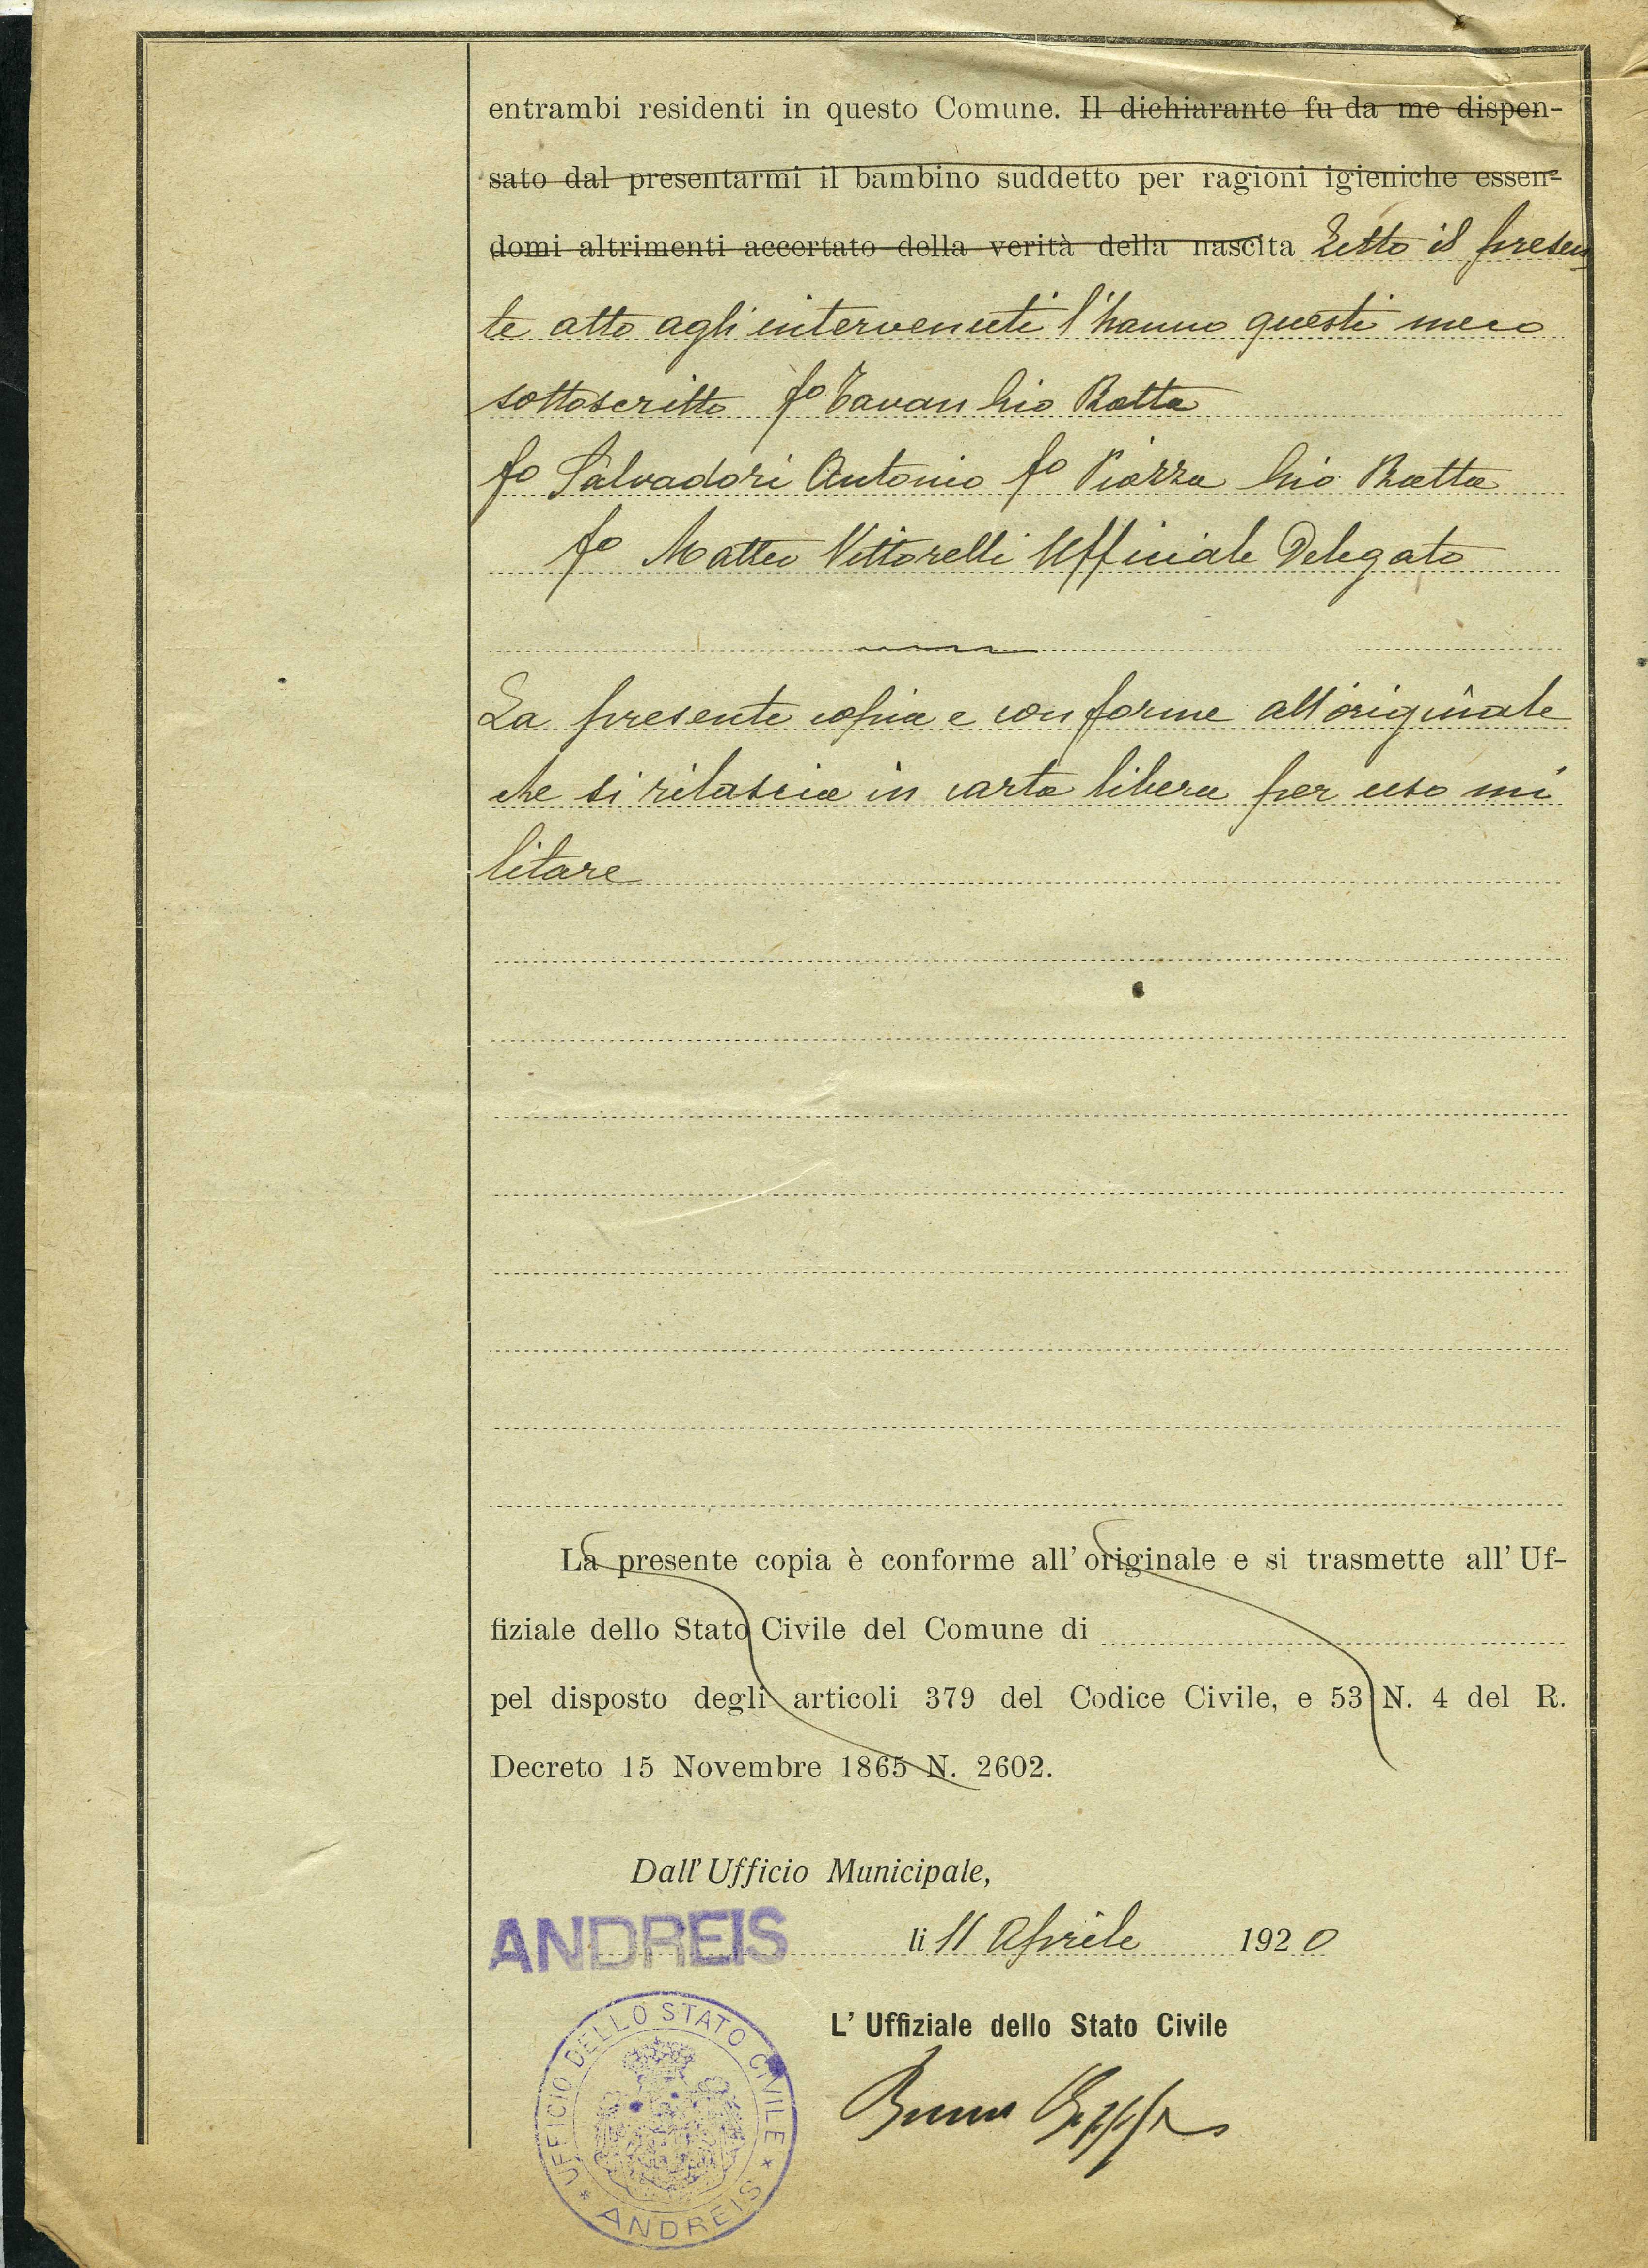 entrambi residenti in questo Comune. Il dichiarante fu da me dispen-
sato dal presentarmi il bambino suddetto per ragioni igieniche essen-
domi altrimenti accertato della verità della nascita Letto il presen
te atto agli intervenuti l'hanno questi meco
sottoscritto fo Tavan Gio Batta
fo Salvadori Antonio fo Piazza Gio Batta
fo Matteo Vittorelli Ufficiale Delegato
La presente copia e conforme all'originale
che si rilascia in carta libera per uso mi
litare
La presente copia è conforme all'originale e si trasmette all'Uf-
fiziale dello Stato Civile del Comune di
pel disposto degli articoli 379 del Codice Civile, e 53 N. 4 del R.
Decreto 15 Novembre 1865 N. 2602.
Dall'Ufficio Municipale,
ANDREIS li 11 Aprile 1920
L'Uffiziale dello Stato Civile
UFFICIO DELLO STATO CIVILE * ANDREIS *